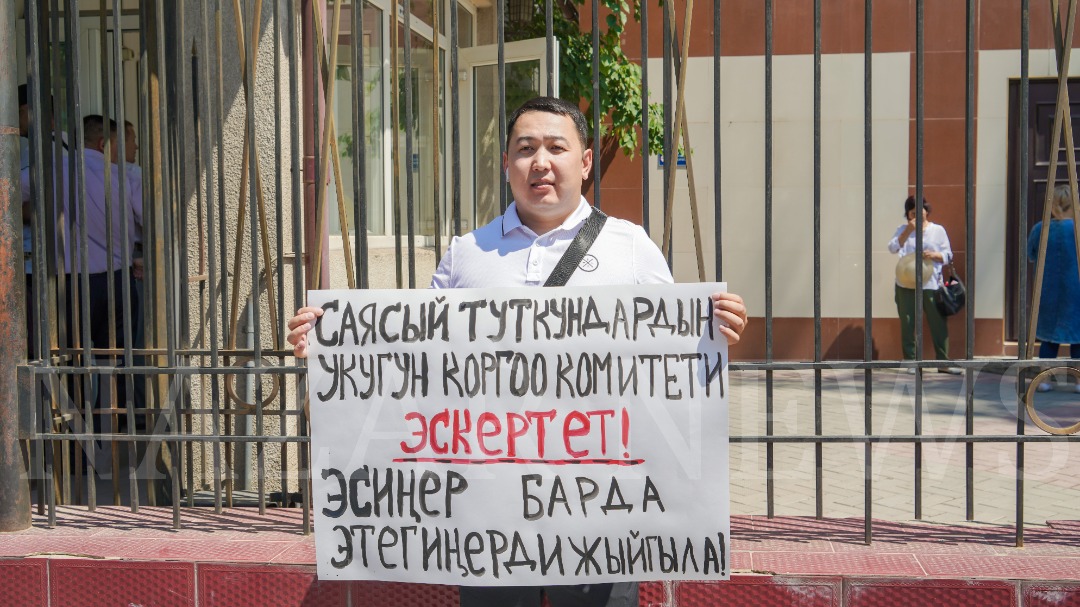 САЯСЫЙ ТУТКУНДАРДЫН
УКУГУН КОРГОО КОМИТЕТИ
ЭСКЕРТЕТ!
ЭСИҢЕР БАРДА
ЭТЕГИҢЕРДИ ЖЫЙГЫЛА!
NAZAR NEWS